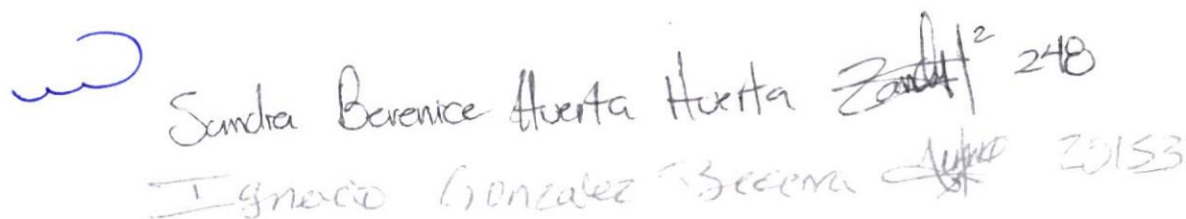 Sandra Berenice Huerta Huerta 248
Ignacio Gonzalez Becerra 20153